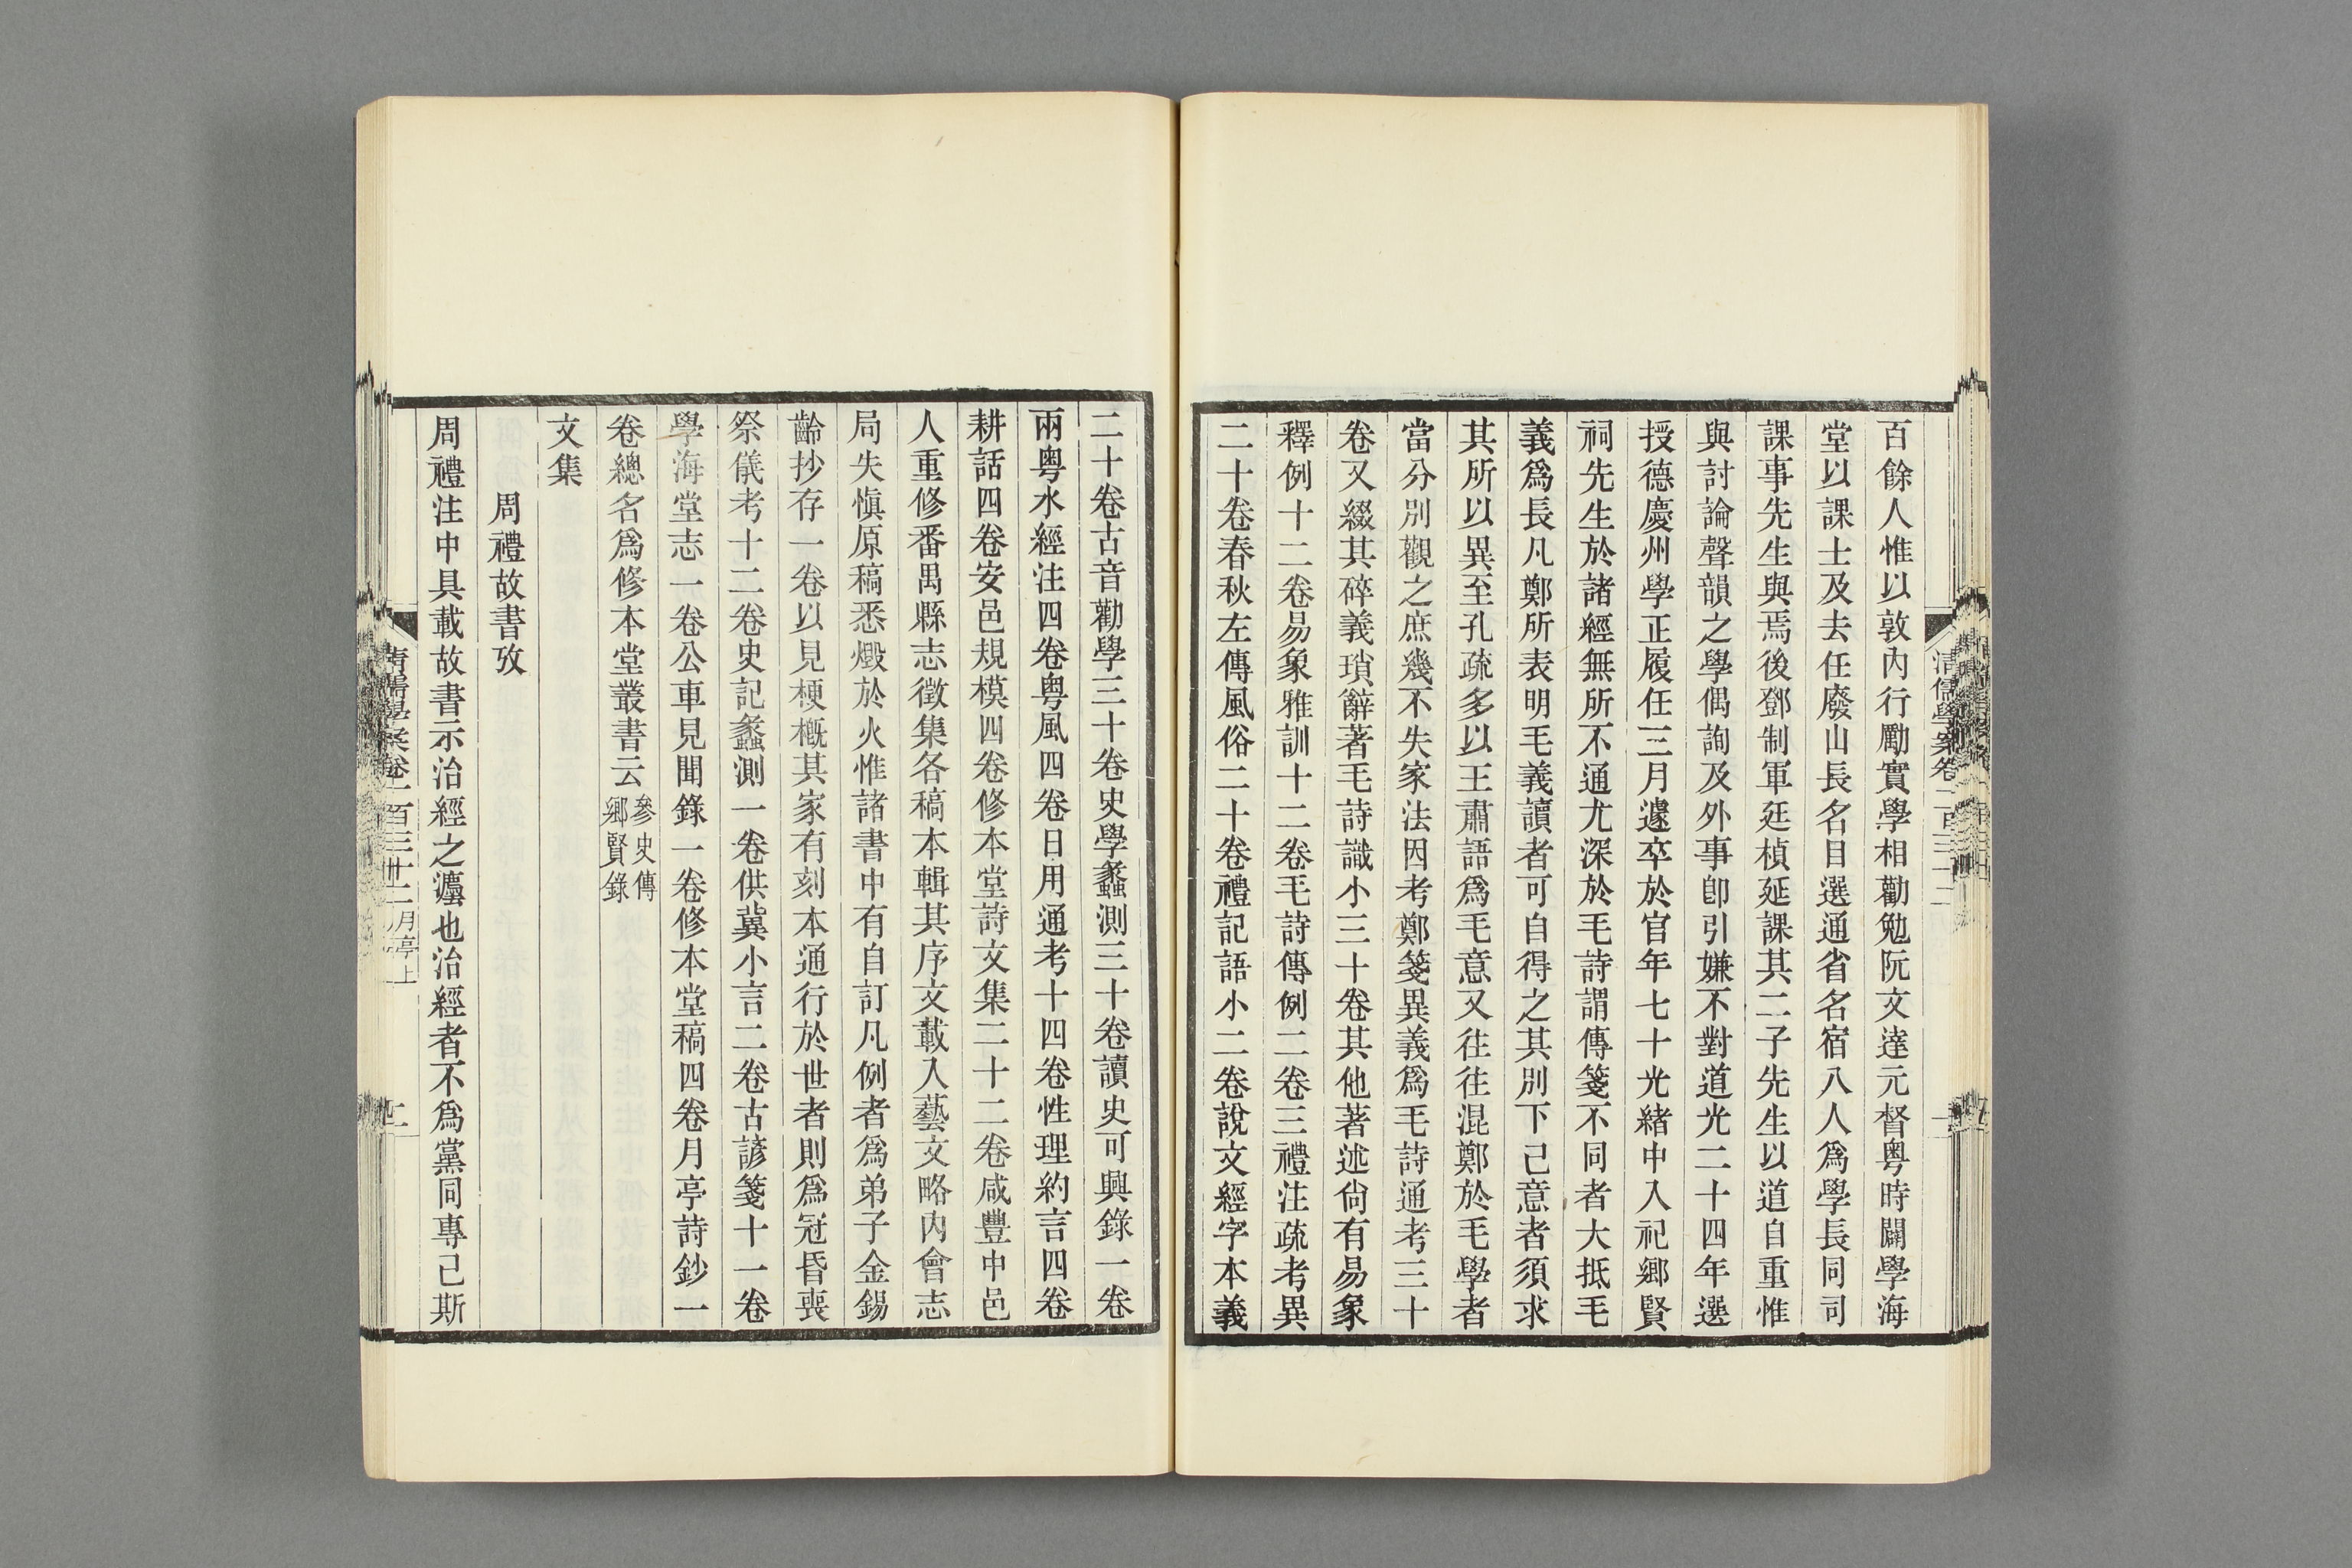 百餘人惟以敦內行勵實學相勸勉阮文達元督粵時闢學海
堂以課士及去任廢山長名目選通省名宿八人爲學長同司
課事先生與焉後鄧制軍廷楨延課其二子先生以道自重惟
與討論聲韻之學偶詢及外事卽引嫌不對道光二十四年選
授德慶州學正履任三月遽卒於官年七十光緒中入祀鄉賢
祠先生於諸經無所不通尤深於毛詩謂傳箋不同者大抵毛
義爲長凡鄭所表明毛義讀者可自得之其別下己意者須求
其所以異至孔疏多以王肅語爲毛意又往往混鄭於毛學者
當分別觀之庶幾不失家法因考鄭箋異義爲毛詩通考三十
卷又綴其碎義瑣辭著毛詩識小三十卷其他著述尙有易象
釋例十二卷易象雅訓十二卷毛詩傳例二卷三禮注疏考異
二十卷春秋左傳風俗二十卷禮記語小二卷說文經字本義
清儒學案卷一百三十二
二十卷古音勸學三十卷史學蠡測三十卷讀史可興錄一卷
兩粵水經注四卷粵風四卷日用通考十四卷性理約言四卷
耕話四卷安邑規模四卷修本堂詩文集二十二卷咸豐中邑
人重修番禺縣志徵集各稿本輯其序文載入藝文略內會志
局失愼原稿悉燬於火惟諸書中有自訂凡例者爲弟子金錫
齡抄存一卷以見梗槪其家有刻本通行於世者則爲冠昏喪
祭儀考十二卷史記蠡測一卷供冀小言二卷古諺箋十一卷
學海堂志一卷公車見聞錄一卷修本堂稿四卷月亭詩鈔一
卷總名爲修本堂叢書云參史傳
鄉賢錄
文集
周禮故書攷
周禮注中具載故書示治經之灋也治經者不爲黨同專己斯
清儒學案卷一百三十二 月亭上
二